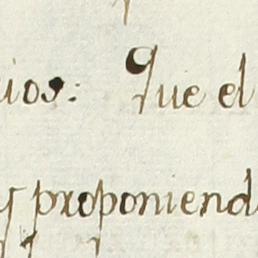 ios: Que el
y proponiend